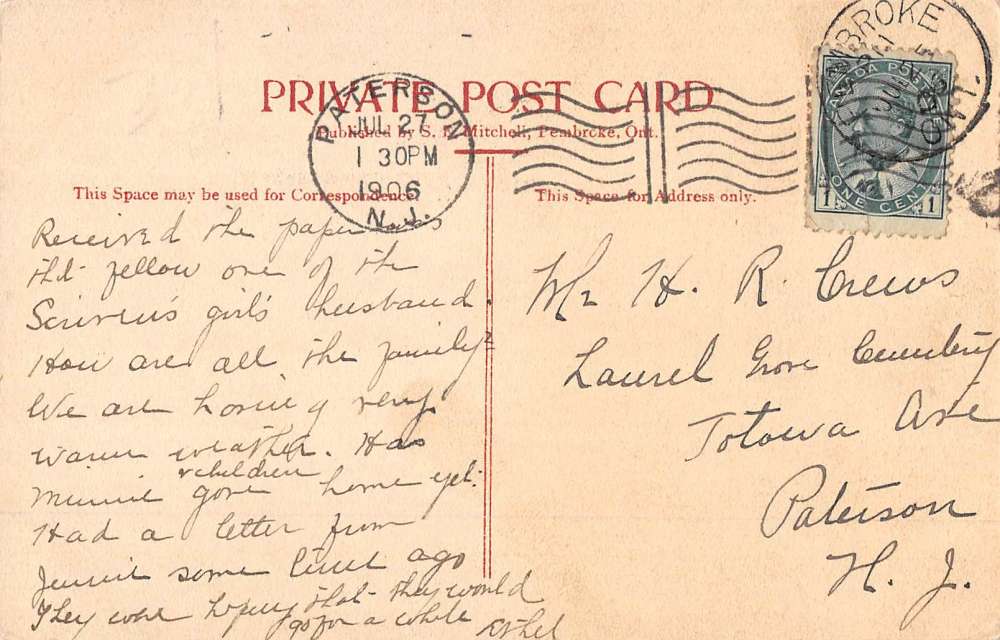 PRIVATE POST CARD
Published by S. E. Mitchell, Pembroke, Ont.
This Space may be used for Correspondence.
This Space for Address only.
PATERSON
JUL 27
1 30PM
1906
N.J.
PEMBROKE
CANADA POSTAGE
1 ONE CENT 1
Received the paper was
that fellow one of the
Scriven's girl's husband.
How are all the family?
We are having very
warm weather. Has
Minnie & children gone home yet.
Had a letter from
Jennie some time ago
They were hoping that they would
go for a while
Ethel
Mr H. R. Crews
Laurel Grove Cemetery
Totowa Ave
Paterson
N. J.